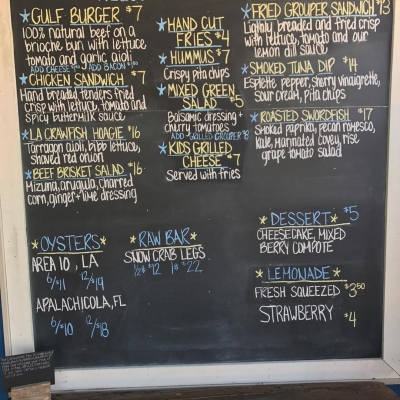 GULF BURGER $7
100% natural beef on a
brioche bun with lettuce
tomato and garlic aioli
ADD CHEESE ADD BACON
CHICKEN SANDWICH $7
Hand breaded tenders fried
crisp with lettuce, tomato and
spicy buttermilk sauce
LA CRAWFISH HOAGIE $16
Tarragon aioli, bibb lettuce,
shaved red onion
BEEF BRISKET SALAD $16
Mizuna, arugula, charred
corn, ginger + lime dressing
HAND CUT
FRIES $4
HUMMUS $7
Crispy pita chips
MIXED GREEN
SALAD $5
Balsamic dressing +
cherry tomatoes
ADD-GRILLED GROUPER $8
KIDS GRILLED
CHEESE $7
Served with fries
FRIED GROUPER SANDWICH $13
Lightly breaded and fried crisp
with lettuce, tomato and our
lemon dill sauce
SMOKED TUNA DIP $14
Espelette pepper, sherry vinaigrette,
sour cream, pita chips
ROASTED SWORDFISH $17
Smoked paprika, pecan romesco,
kale, marinated
grape tomato salad
OYSTERS
AREA 10, LA
6/$11 12/$19
APALACHICOLA, FL
6/$10 12/$18
RAW BAR
SNOW CRAB LEGS
1/2# $12 1# $22
DESSERT $5
CHEESECAKE, MIXED
BERRY COMPOTE
LEMONADE
FRESH SQUEEZED $3.50
STRAWBERRY $4